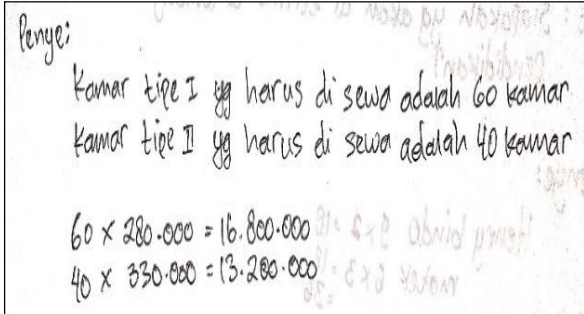 Penye:
Kamar tipe I yg harus di sewa adalah 60 kamar
Kamar tipe II yg harus di sewa adalah 40 kamar
60 x 280.000 = 16.800.000
40 x 330.000 = 13.200.000